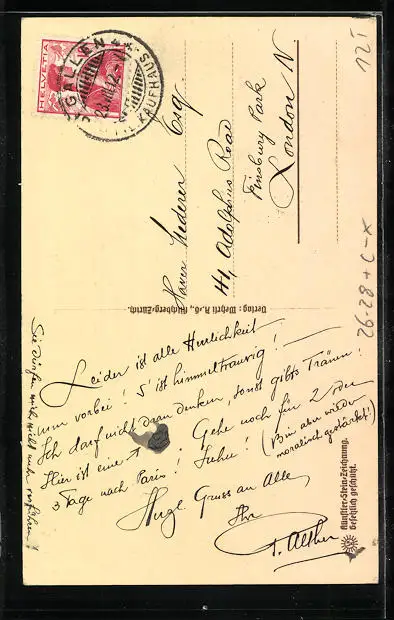 HELVETIA
ST. GALLEN
KAUFHAUS
Xaver Lederer Esq.
44, Adolphus Road
Finsbury Park
London N
12T
26-28 + C-X
Verlag: Wehrli A.-G., Kilchberg-Zürich.
Leider ist alle Herrlichkeit
nun vorbei! S'ist himmeltraurig!
Ich darf nicht dran denken, sonst gibts Tränen!
Hier ist eine
Gehe noch für 2 oder
3 Tage nach Paris! Juhu! (Bin aber wieder
moralisch gestärkt!)
Hrzl. Gruss an Alle
Ihr
Sie dürfen mich nicht mehr
Künstler-Stein-Zeichnung.
Gesetzlich geschützt.